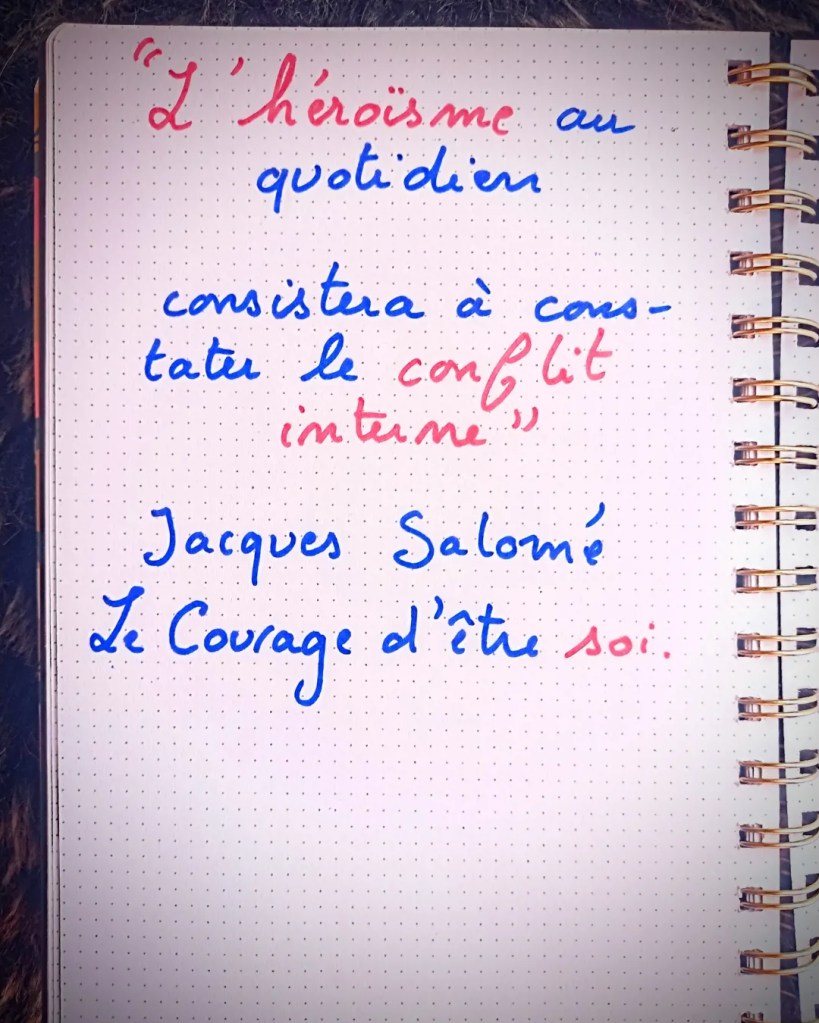 "L'héroïsme au
quotidien
consistera à cons-
tater le conflit
interne"
Jacques Salomé
Le Courage d'être soi.